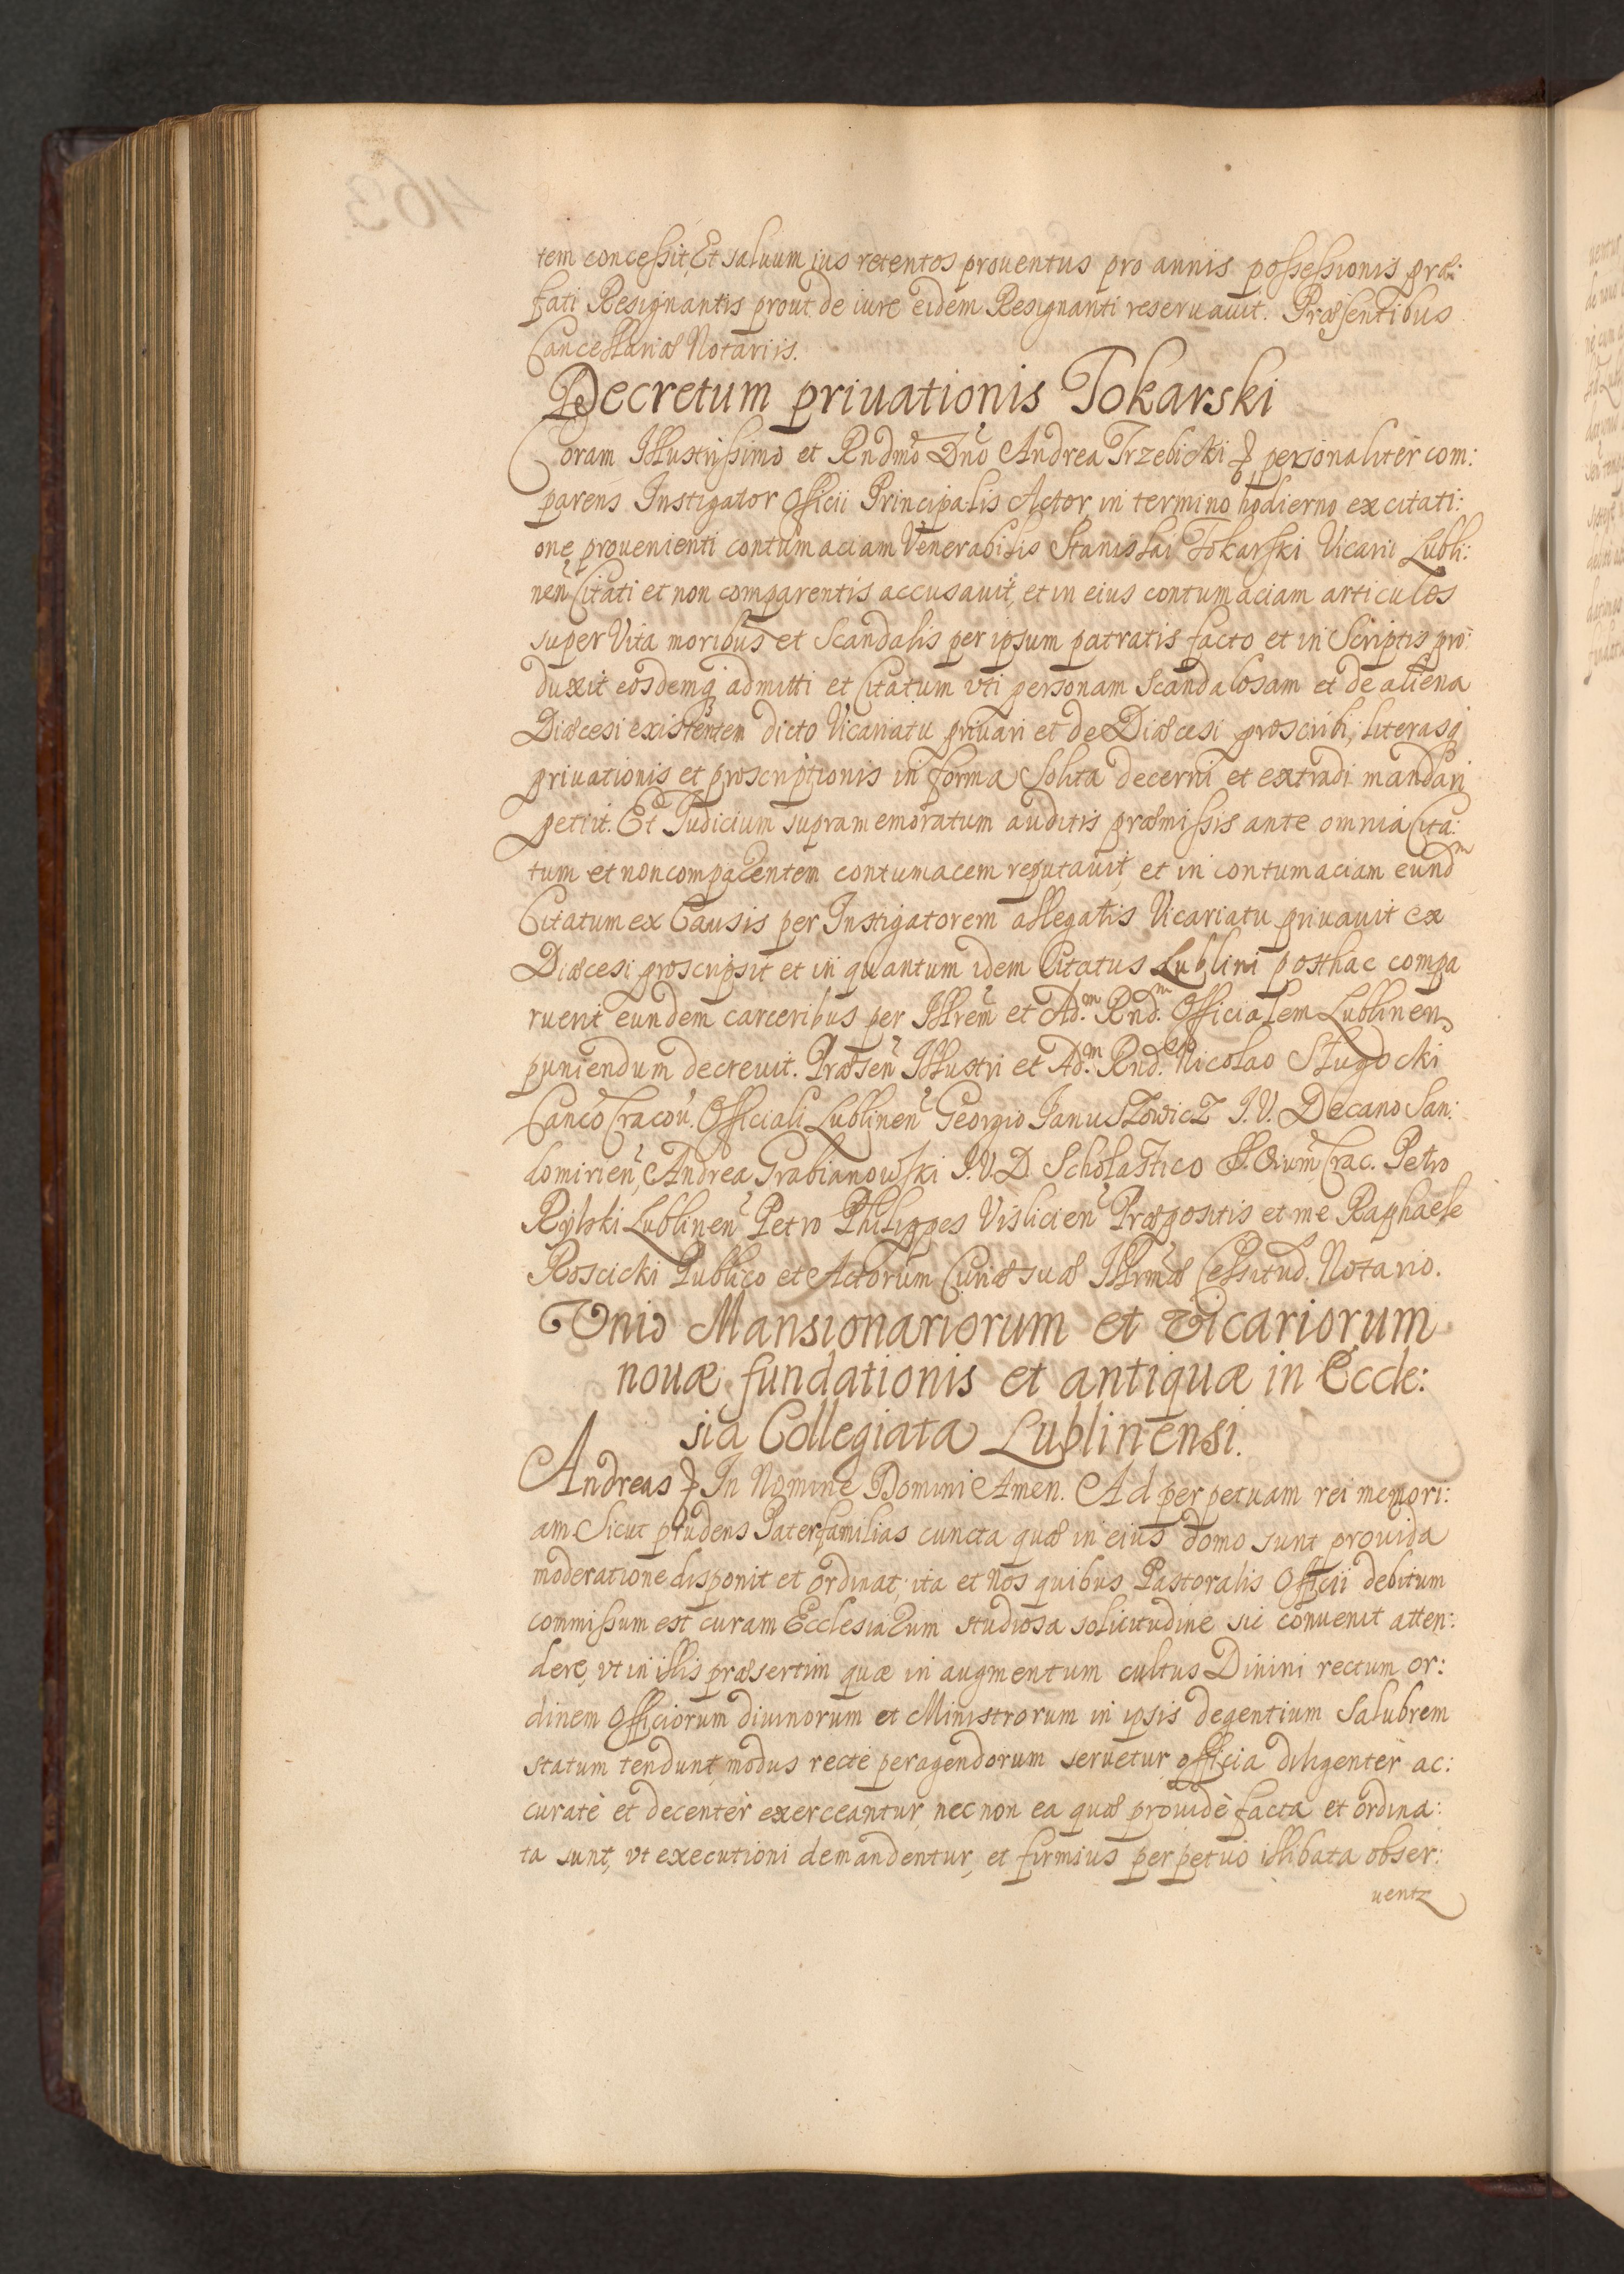 tem concessit Et saluum ius retentos prouentus pro annis possessionis præ:
fati Resignantis prout de iure eidem Resignanti reseruauit. Præsentibus
Cancellariæ Notariis.
Decretum priuationis Tokarski
Coram Illustrissimo et Rndmo Dno Andrea Trzebicki & personaliter com:
parens Instigator Officii Principalis Actor in termino hodierno ex citati:
one prouenienti contumaciam Venerabilis Stanislai Tokarski Vicarii Lubli:
nen Citati et non comparentis accusauit, et in eius contumaciam articulos
super Vita moribus et Scandalis per ipsum patratis facto et in Scriptis pro:
duxit eosdemq admitti et Citatum vti personam Scandalosam et de aliena
Diæcesi existentem dicto Vicariatu priuari et de Diæcesi proscribi, literasq
priuationis et proscriptionis in forma Solita decerni et extradi mandari
petiit. Et Iudicium supramemoratum auditis præmissis ante omnia Cita:
tum et noncomparentem contumacem reputauit, et in contumaciam eund^m
Citatum ex Causis per Instigatorem allegatis Vicariatu priuauit ex
Diæcesi proscripsit et in quantum idem Citatus Lublini posthac compa
ruerit eundem carceribus per Illrem et Ad.^m Rnd.^m Officialem Lublinen
puniendum decreuit. Præsen Illustri et Ad.^m Rnd.^o Nicolao Sługocki
Canco Cracou. Officiali Lublinen Georgio Ianuszowicz I. V. Decano San:
domirien, Andrea Grabianowski I. V. D. Scholastico SS. Oium Crac. Petro
Rylski Lublinen Petro Philippes Vislicien Præpositis et me Raphaele
Roscicki Publico et Actorum Curiæ suæ Illrmæ Celsitud. Notario.
Vnio Mansionariorum et Vicariorum
nouæ fundationis et antiquæ in Eccle:
sia Collegiata Lublinensi.
Andreas & In Nomine Domini Amen. Ad perpetuam rei memori:
am Sicut prudens Paterfamilias cuncta quæ in eius domo sunt prouida
moderatione disponit et ordinat, ita et nos quibus Pastoralis Officii debitum
commissum est curam Ecclesiarum studiosa solicitudine sic conuenit atten:
dere, vt in illis præsertim quæ in augmentum cultus Diuini rectum or:
dinem Officiorum diuinorum et Ministrorum in ipsis degentium Salubrem
statum tendunt, modus recte peragendorum seruetur officia diligenter ac:
curatè et decentèr exerceantur, nec non ea quæ prouidè facta et ordina:
ta sunt, vt executioni demandentur, et firmius perpetuo illibata obser:
uentz